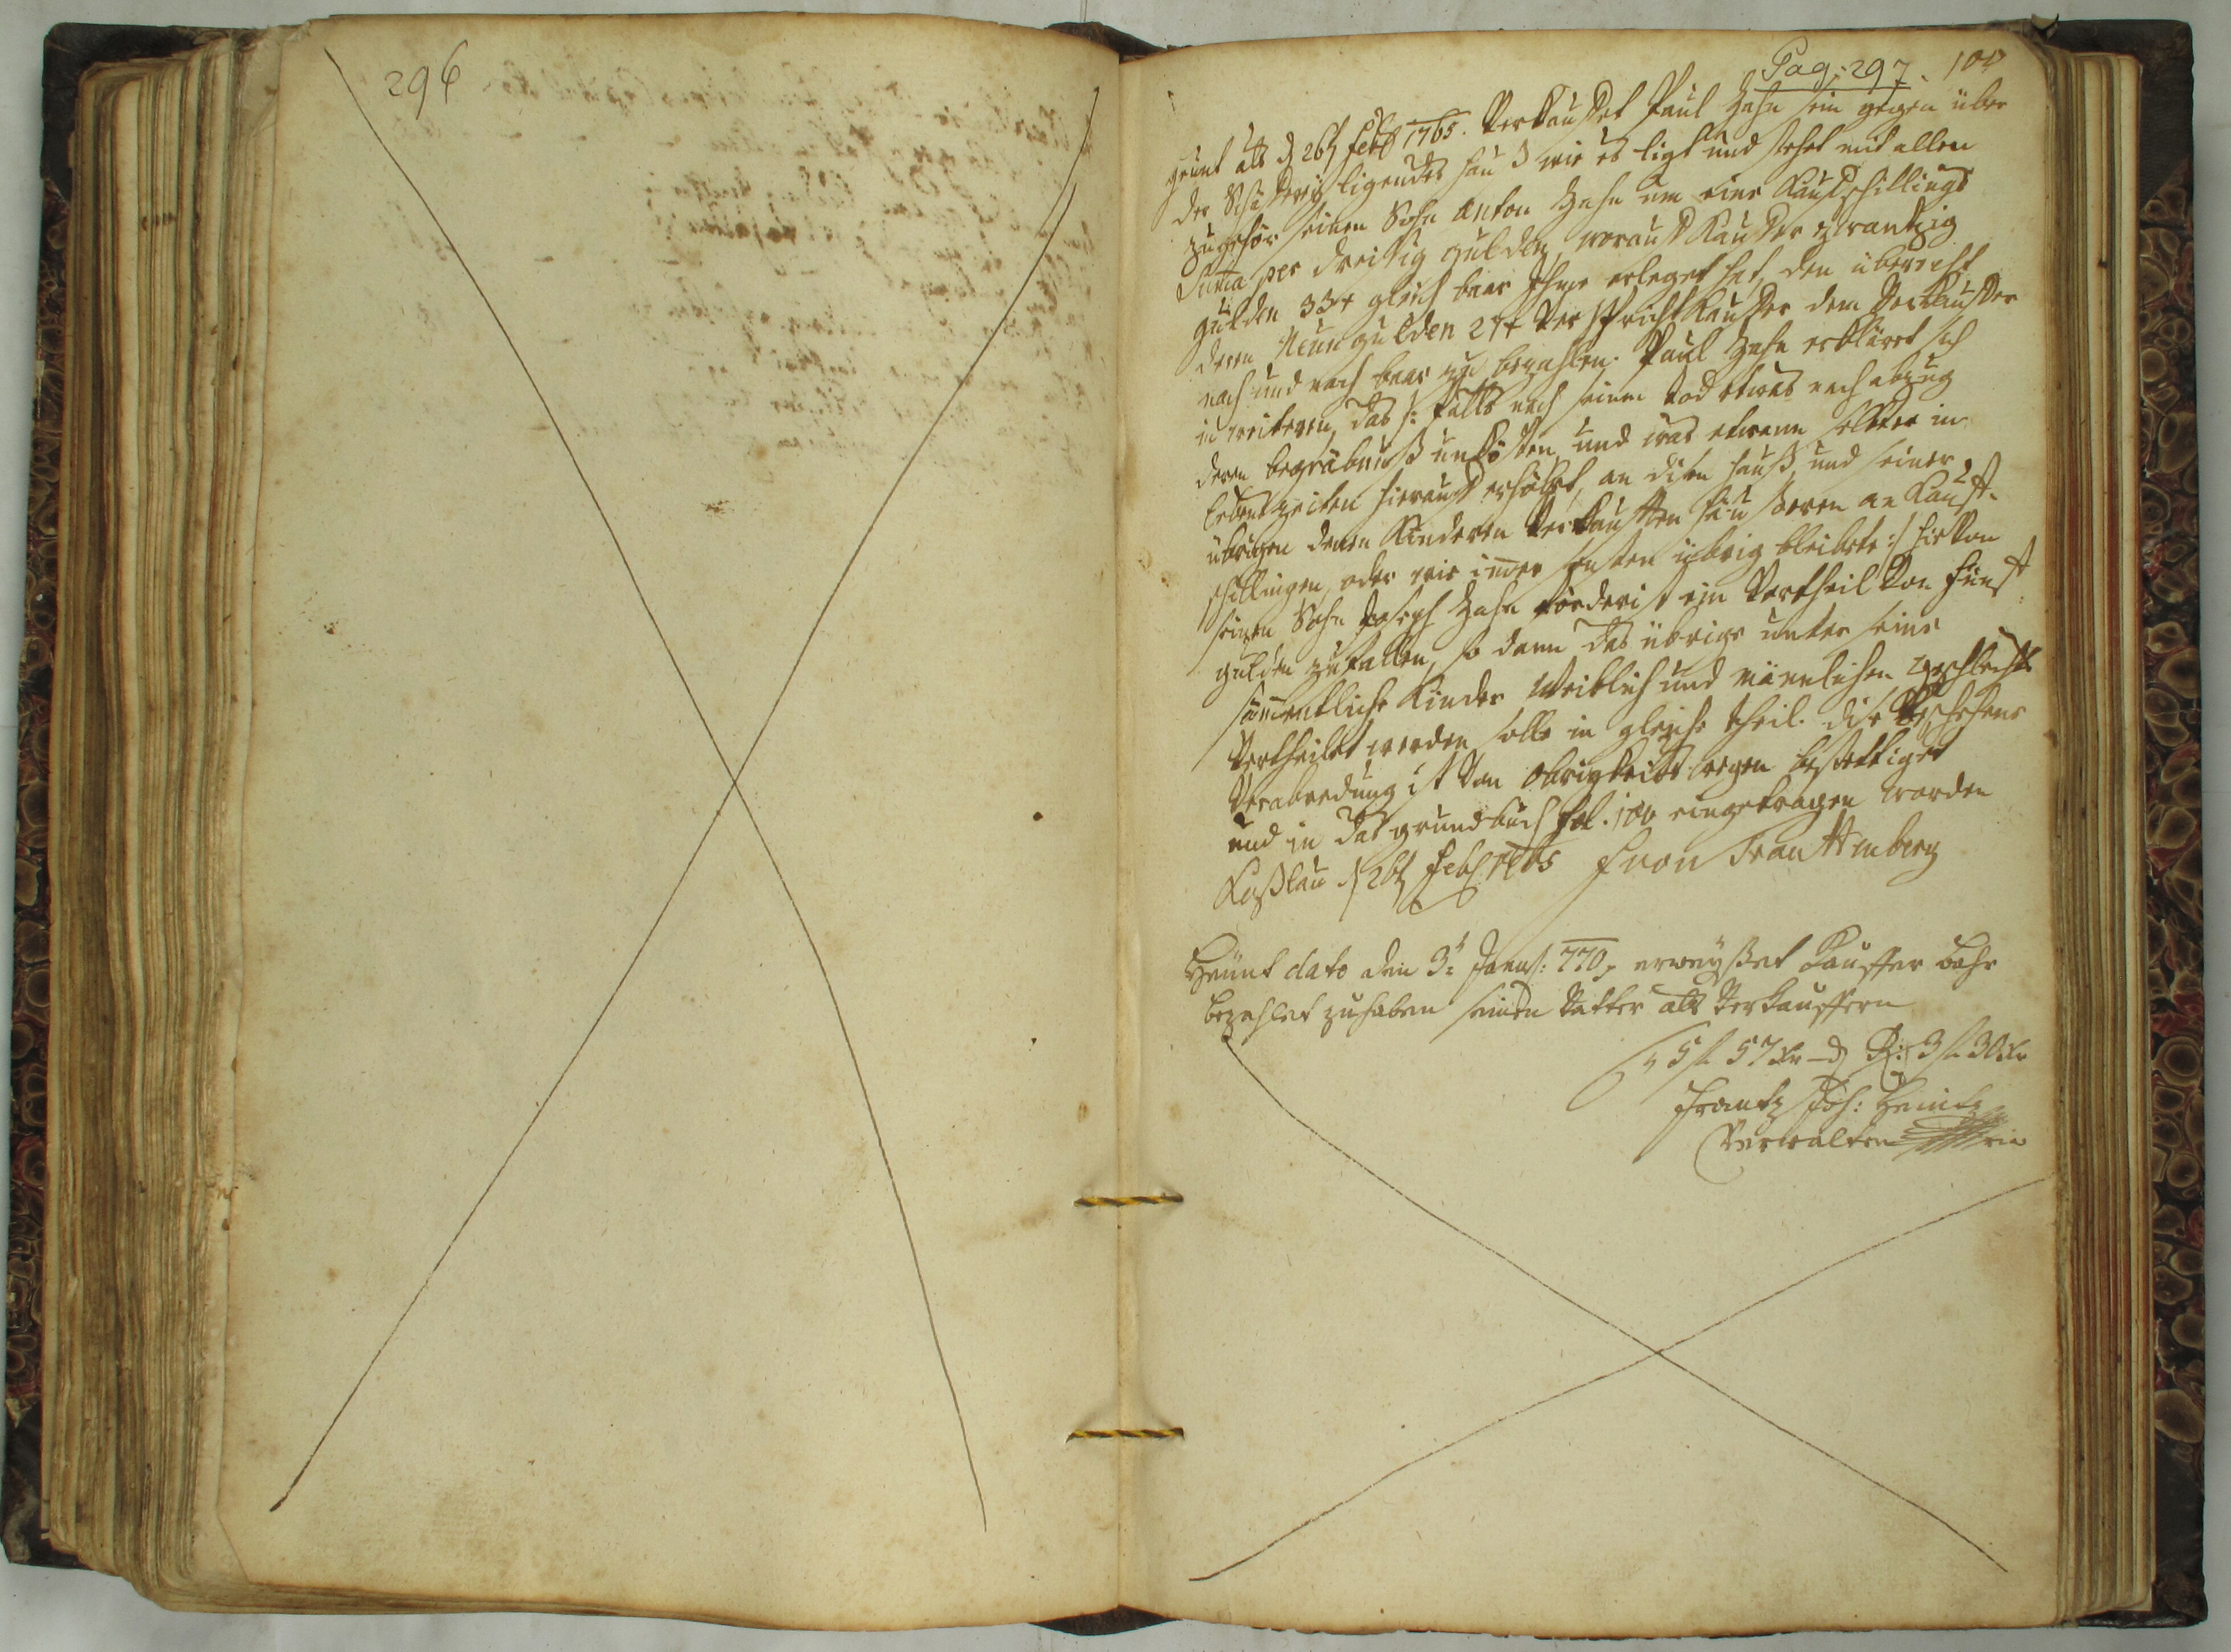 296
Pag: 297. 100
heunt als d 26t Feb 1765. Verkauffet Paul Hahn sein gegen über
der Schäfferey ligendes hauß wie es ligt und stehet mit allen
zugehör seinem Sohn Anton Hahn um eine Kaufschillings
Suma per dreisig gulden, worauf Kauffer zwantzig
gulden 33 x gleich baar Ihme erleget hat, den überrest
deren Neun gulden 27 x verspricht Kauffer dem Verkauffer
nach und nach baar zu bezahlen. Paul Hahn erkläret sich
in weiteren, das /: falls nach seinem tod etwas nach abzug
deren begräbnuß unkosten, und was etwann selbter in
lebens zeiten hierauf erhöbet, an disen hauß, und seiner
übrigen denen Kinderen verkaufften häuseren an Kauf-
schillingen, oder wie imer sonsten übrig bleibete :/ hievon
seinen Sohn Joseph Hahn förderist ein Vortheil von fünf
gulden zufallen, so dann das übrige unter seine
sämentliche Kinder weiblich und mänlichen geschlechts
Vertheilet werden solle in gleiche theil. dise beschehene
Verabredung ist von Obrigkeits wegen bestättiget
und in das grundbuch fol. 100 eingetragen worden
d 26t Feb 1765 F von Frauttenberg
Heünt dato den 3t Janu: 770, erweyßet Kauffer bahr
bezahlet zuhaben seinen Vatter als Verkauffern
5 f 57 xr – d R: 3 f 30 xr
Frantz Joh: Heintz
Verwalter